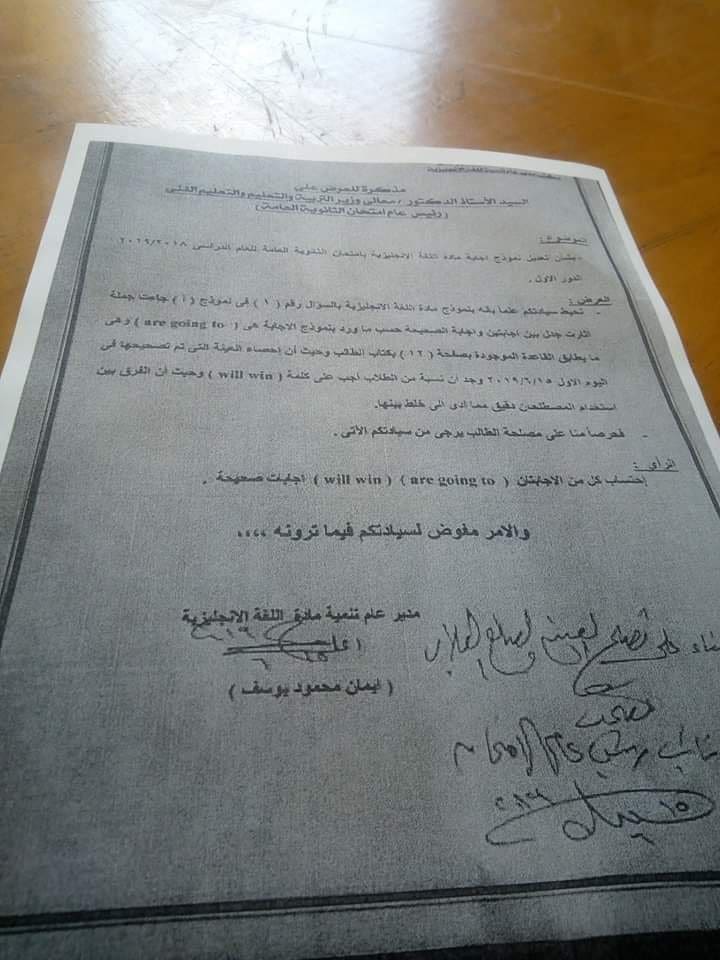 مذكرة للعرض على
السيد الأستاذ الدكتور / معالى وزير التربية والتعليم والتعليم الفنى
( رئيس عام امتحان الثانوية العامة )
الموضوع :
- بشأن تعديل نموذج اجابة مادة اللغة الانجليزية بامتحان الثانوية العامة للعام الدراسى ٢٠١٩/٢٠١٨
الدور الاول .
العرض :
- نحيط سيادتكم علما بأنه بنموذج مادة اللغة الانجليزية بالسؤال رقم ( ١ ) فى نموذج ( أ ) جاءت جملة
اثارت جدل بين اجابتين واجابة الصحيحة حسب ما ورد بنموذج الاجابة هى ( are going to ) وهى
ما يطابق القاعدة الموجودة بصفحة ( ١٢ ) بكتاب الطالب وحيث أن إحصاء العينة التى تم تصحيحها فى
اليوم الاول ٢٠١٩/٦/١٥ وجد ان نسبة من الطلاب اجب على كلمة ( will win ) وحيث أن الفرق بين
استخدام المصطلحان دقيق مما أدى الى خلط بينها.
- فحرصاً منا على مصلحة الطالب يرجى من سيادتكم الآتى .
الرأى :
إحتساب كل من الاجابتان ( are going to ) ( will win ) اجابات صحيحة .
والامر مفوض لسيادتكم فيما ترونه ،،،،
مدير عام تنمية مادة اللغة الانجليزية
( ايمان محمود يوسف )